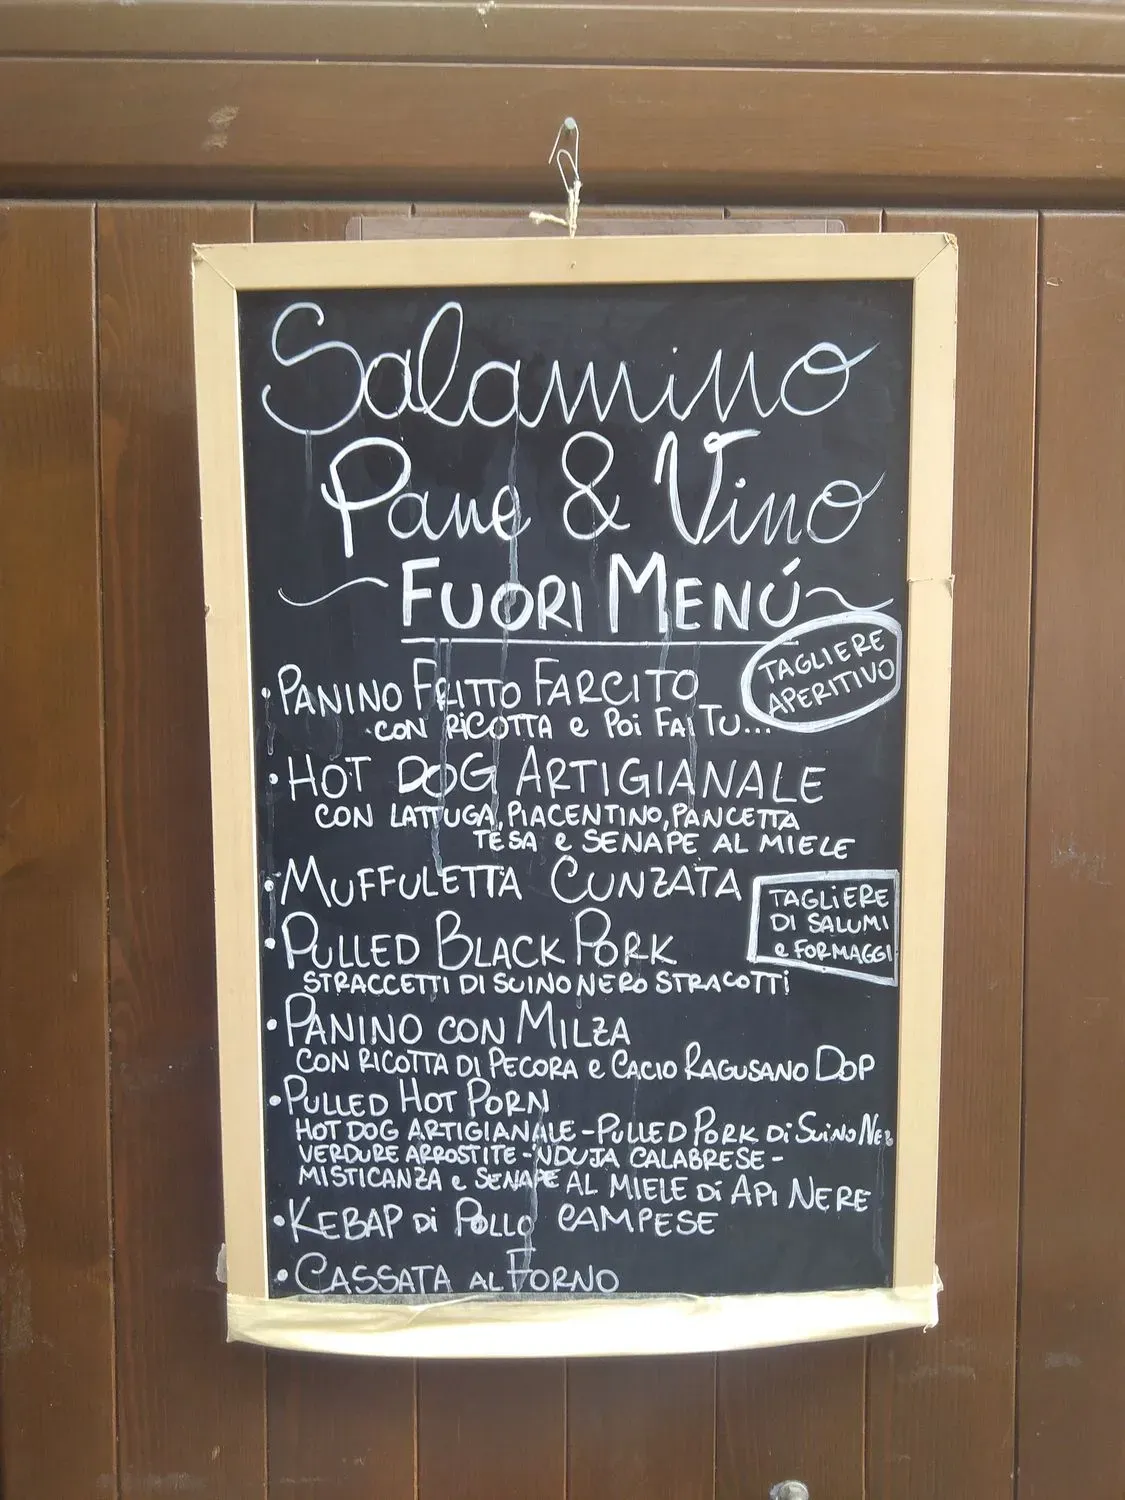 Salamino
Pane & Vino
FUORI MENÚ
TAGLIERE
APERITIVO
• PANINO FRITTO FARCITO
CON RICOTTA e Poi FAI TU...
• HOT DOG ARTIGIANALE
CON LATTUGA, PIACENTINO, PANCETTA
TESA e SENAPE AL MIELE
• MUFFULETTA CUNZATA
TAGLIERE
DI SALUMI
e FORMAGGI
• PULLED BLACK PORK
STRACCETTI DI SUINO NERO STRACOTTI
• PANINO CON MILZA
CON RICOTTA DI PECORA e CACIO RAGUSANO DOP
• PULLED HOT PORN
HOT DOG ARTIGIANALE - PULLED PORK Di SUINO NERO
VERDURE ARROSTITE - 'NDUJA CALABRESE -
MISTICANZA e SENAPE AL MIELE Di API NERE
• KEBAP Di POLLO CAMPESE
• CASSATA AL FORNO